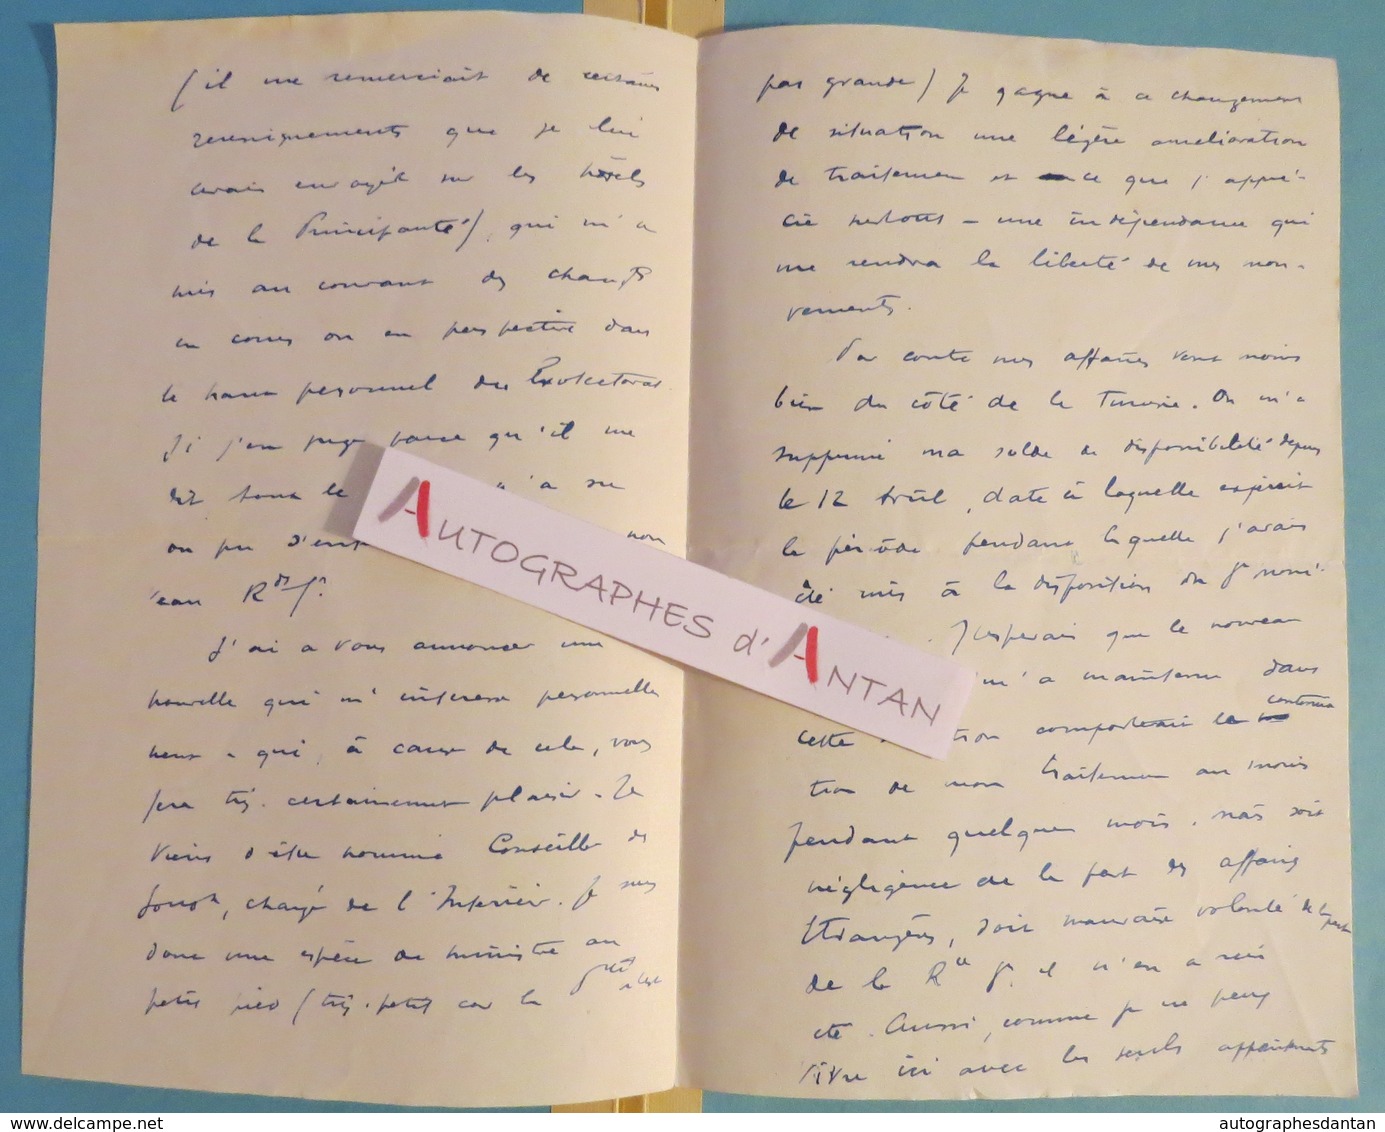 (il me remerciait de certains
renseignements que je lui
avais envoyés sur les hôtels
de la Principauté), qui m'a
mis au courant des changts
en cours ou en perspective dans
le haut personnel du Protectorat.
Si j'en juge parce qu'il me
dit tout le n'a su
ou pu s'ent non
eau Rdt Gl.
J'ai à vous annoncer une
nouvelle qui m'intéresse personnelle
ment et qui, à cause de cela, vous
fera très certainement plaisir. Je
viens d'être nommé Conseiller de
Gouvt, chargé de l'Intérieur. Je suis
donc une espèce de ministre au
petit pied (très petit car la Pté n'est
pas grande) Je gagne à ce changement
de situation une légère amélioration
de traitement et ce que j'appré-
cie surtout – une indépendance qui
me rendra la liberté de mes mou-
vements.
Par contre mes affaires vont moins
bien du côté de la Tunisie. On m'a
supprimé ma solde de disponibilité depuis
le 12 avril, date à laquelle expirait
la période pendant laquelle j'avais
été mis à la disposition du Gt moné-
J'espérais que le nouveau
m'a maintenu dans
cette tion comporterait la continua
tion de mon traitement au moins
pendant quelques mois. Mais soit
négligence de la part des Affaires
Etrangères, soit mauvaise volonté de la part
de la Rce Gle il n'en a rien
été. Aussi, comme je ne peux
vivre ici avec les seuls appointements
AUTOGRAPHES d'ANTAN
autographesdantan
www.delcampe.net